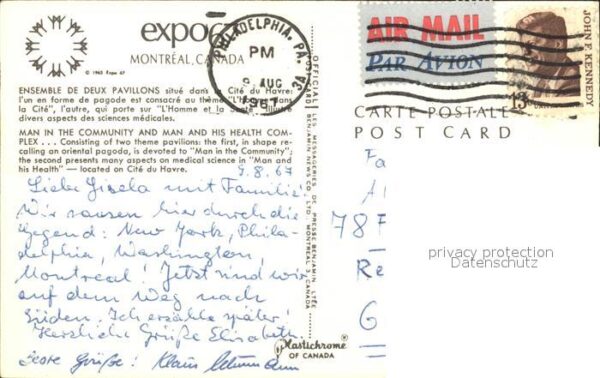 expo67
MONTRÉAL, CANADA
© 1963 Expo 67
ENSEMBLE DE DEUX PAVILLONS situé dans la Cité du Havre:
l'un en forme de pagode est consacré au thème "L'Homme dans
la Cité", l'autre, qui porte sur "l'Homme et la Santé" illustre
divers aspects des sciences médicales.
MAN IN THE COMMUNITY AND MAN AND HIS HEALTH COM-
PLEX . . . Consisting of two theme pavilions: the first, in shape re-
calling an oriental pagoda, is devoted to "Man in the Community";
the second presents many aspects on medical science in "Man and
his Health" — located on Cité du Havre.
9.8.67
Liebe Gisela mit Familie!
Wir sausen hier durch die
Gegend: New York, Phila-
delphia, Washington,
Montreal! Jetzt sind wir
auf dem Weg nach
Süden. Ich erzähle später!
Herzliche Grüße Elisabeth
Grüße! Klaus
PHILADELPHIA, PA.
PM
9 AUG
1967
3A
OFFICIELLES MESSAGERIES DE PRESSE BENJAMIN LTÉE
BENJAMIN NEWS CO., LTD. MONTREAL 3, CANADA
Plastichrome®
OF CANADA
AIR MAIL
PAR AVION
JOHN F. KENNEDY
13c
CARTE POSTALE
POST CARD
Fa
78F
Re
G
privacy protection
Datenschutz